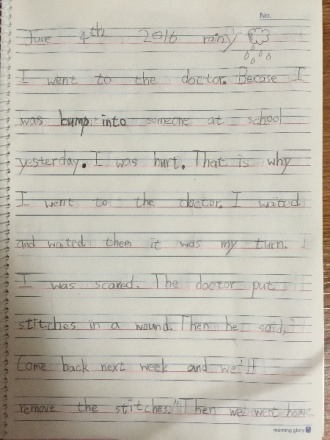 No.
June 4th 2016 rainy
I went to the doctor. Becose I
was bump into someone at school
yesterday. I was hurt. That is why
I went to the doctor. I waited
and waited them it was my turn. I
I was scared. The doctor put
stitches in a wound. Then he said,
Come back next week and we'll
remove the stitches." Then we went home.
morning glory